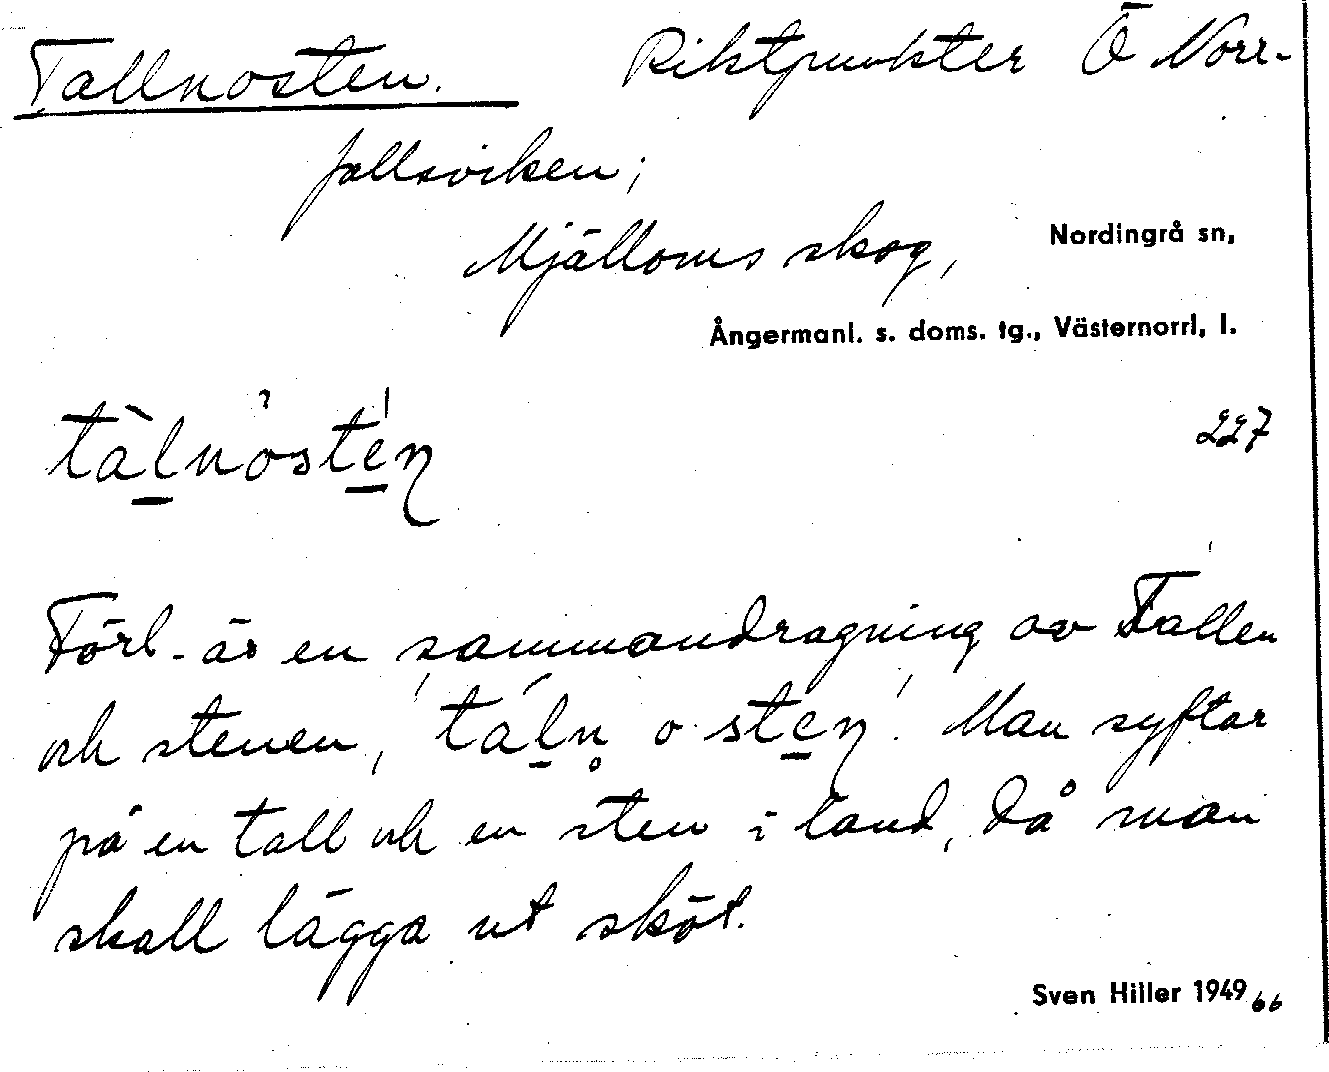 Tallnosten. Riktpunkter Ö Norr-
fällsviken;
Mjälloms skog, Nordingrå sn,
Ångermanl. s. doms. tg., Västernorrl. l.
tàl̠nòst́e̠n
227
Förl. är en sammandragning av Tallen
och stenen, 'tál̠n̥ o ste̠n'. Man syftar
på en tall och en sten i land, då man
skall lägga ut sköt.
Sven Hiller 1949 66